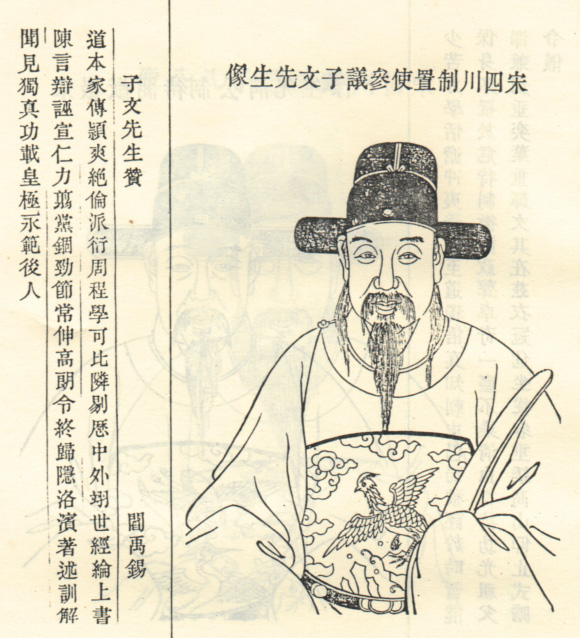 宋四川制置使參議子文先生像
子文先生贊 閻禹錫
道本家傳穎爽絕倫派衍周程學可比隣剔厯中外翊世經綸上書
陳言辯誣宣仁力翦黨錮勁節常伸高朗令終歸隱洛濱著述訓解
聞見獨真功載皇極永範後人